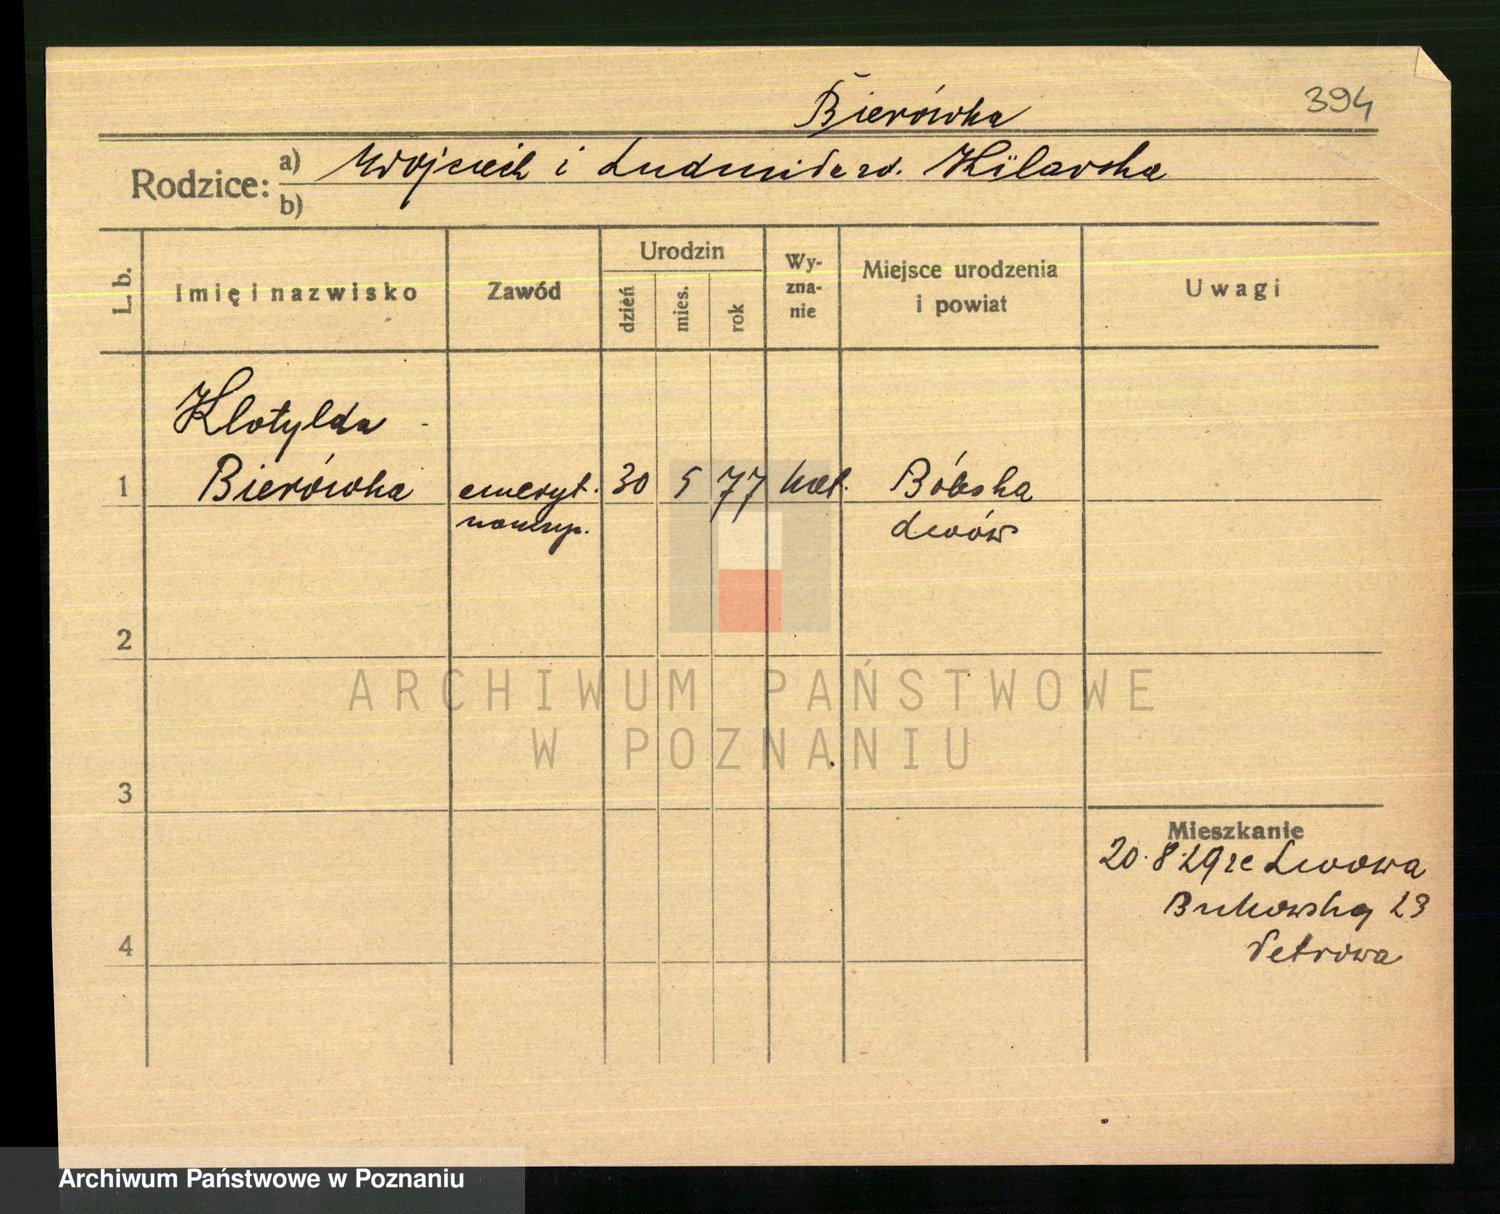 Bierówka
394
Rodzice: a) Wojciech i Ludmiła zd. Hilarska
b)
L. b.
Imię i nazwisko
Zawód
Urodzin
dzień
mies.
rok
Wy-
zna-
nie
Miejsce urodzenia
i powiat
Uwagi
Klotylda
1 Bierówka emeryt. 30 5 77 kat. Bóbrka
naucz. Lwów
2
ARCHIWUM PAŃSTWOWE
W POZNANIU
3
Mieszkanie
20.8.29 ze Lwowa
Bukowska 23
4
Archiwum Państwowe w Poznaniu